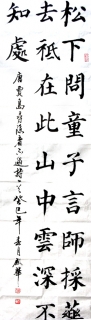 松下問童子言師採藥
去祗在此山中雲深不
知處
唐賈島尋隱者不遇詩一首癸巳年